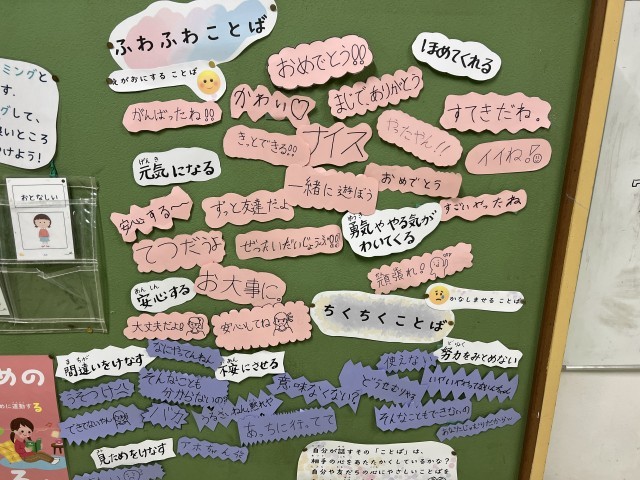 ふわふわことば
えがおにする ことば
おめでとう!!
ほめてくれる
がんばったね!!
かわいい♡
まじで、ありがとう
すてきだね。
きっとできる!!
ナイス
やったやん!!
イイね!
元気になる
げんき
一緒に遊ぼう
おめでとう
安心する〜
ずっと友達だよ
すごいやったね
勇気ややる気が
わいてくる
ゆうき
てつだうよ
ぜったいだいじょうぶ!!
頑張れ!
安心する
あんしん
お大事に。
かなしませる ことば
ちくちくことば
大丈夫だよ!
安心してね
間違いをけなす
まちが
なにやってんねん
不安にさせる
ふあん
使えない
努力をみとめない
どりょく
うそつけ
そんなことも
分からないの?
意味なくない?
できてないやん
バカ
あっちに行ってて
そんなこともできないの
見ためをけなす
アホちゃん
おとなしい
自分が話すその「ことば」は、
相手の心をあたたかくしているかな?
自分や友だちの心にやさしいことばを